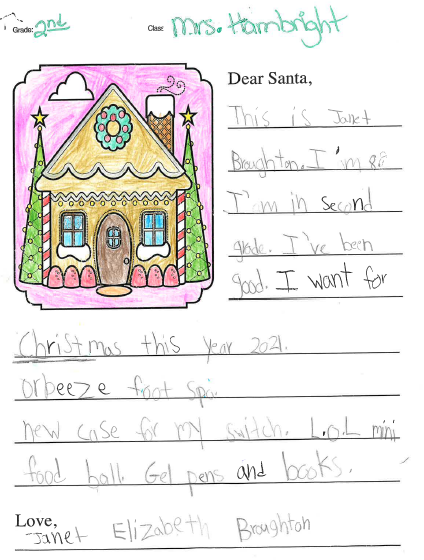 Grade: 2nd Class: Mrs. Hambright
Dear Santa,
This is Janet
Broughton. I'm 8
I'am in second
grade. I've been
good. I want for
Christmas this year 2021.
orbeeze foot spa.
new case for my switch. L.o.L mini
food ball. Gel pens and books.
Love,
Janet Elizabeth Broughton